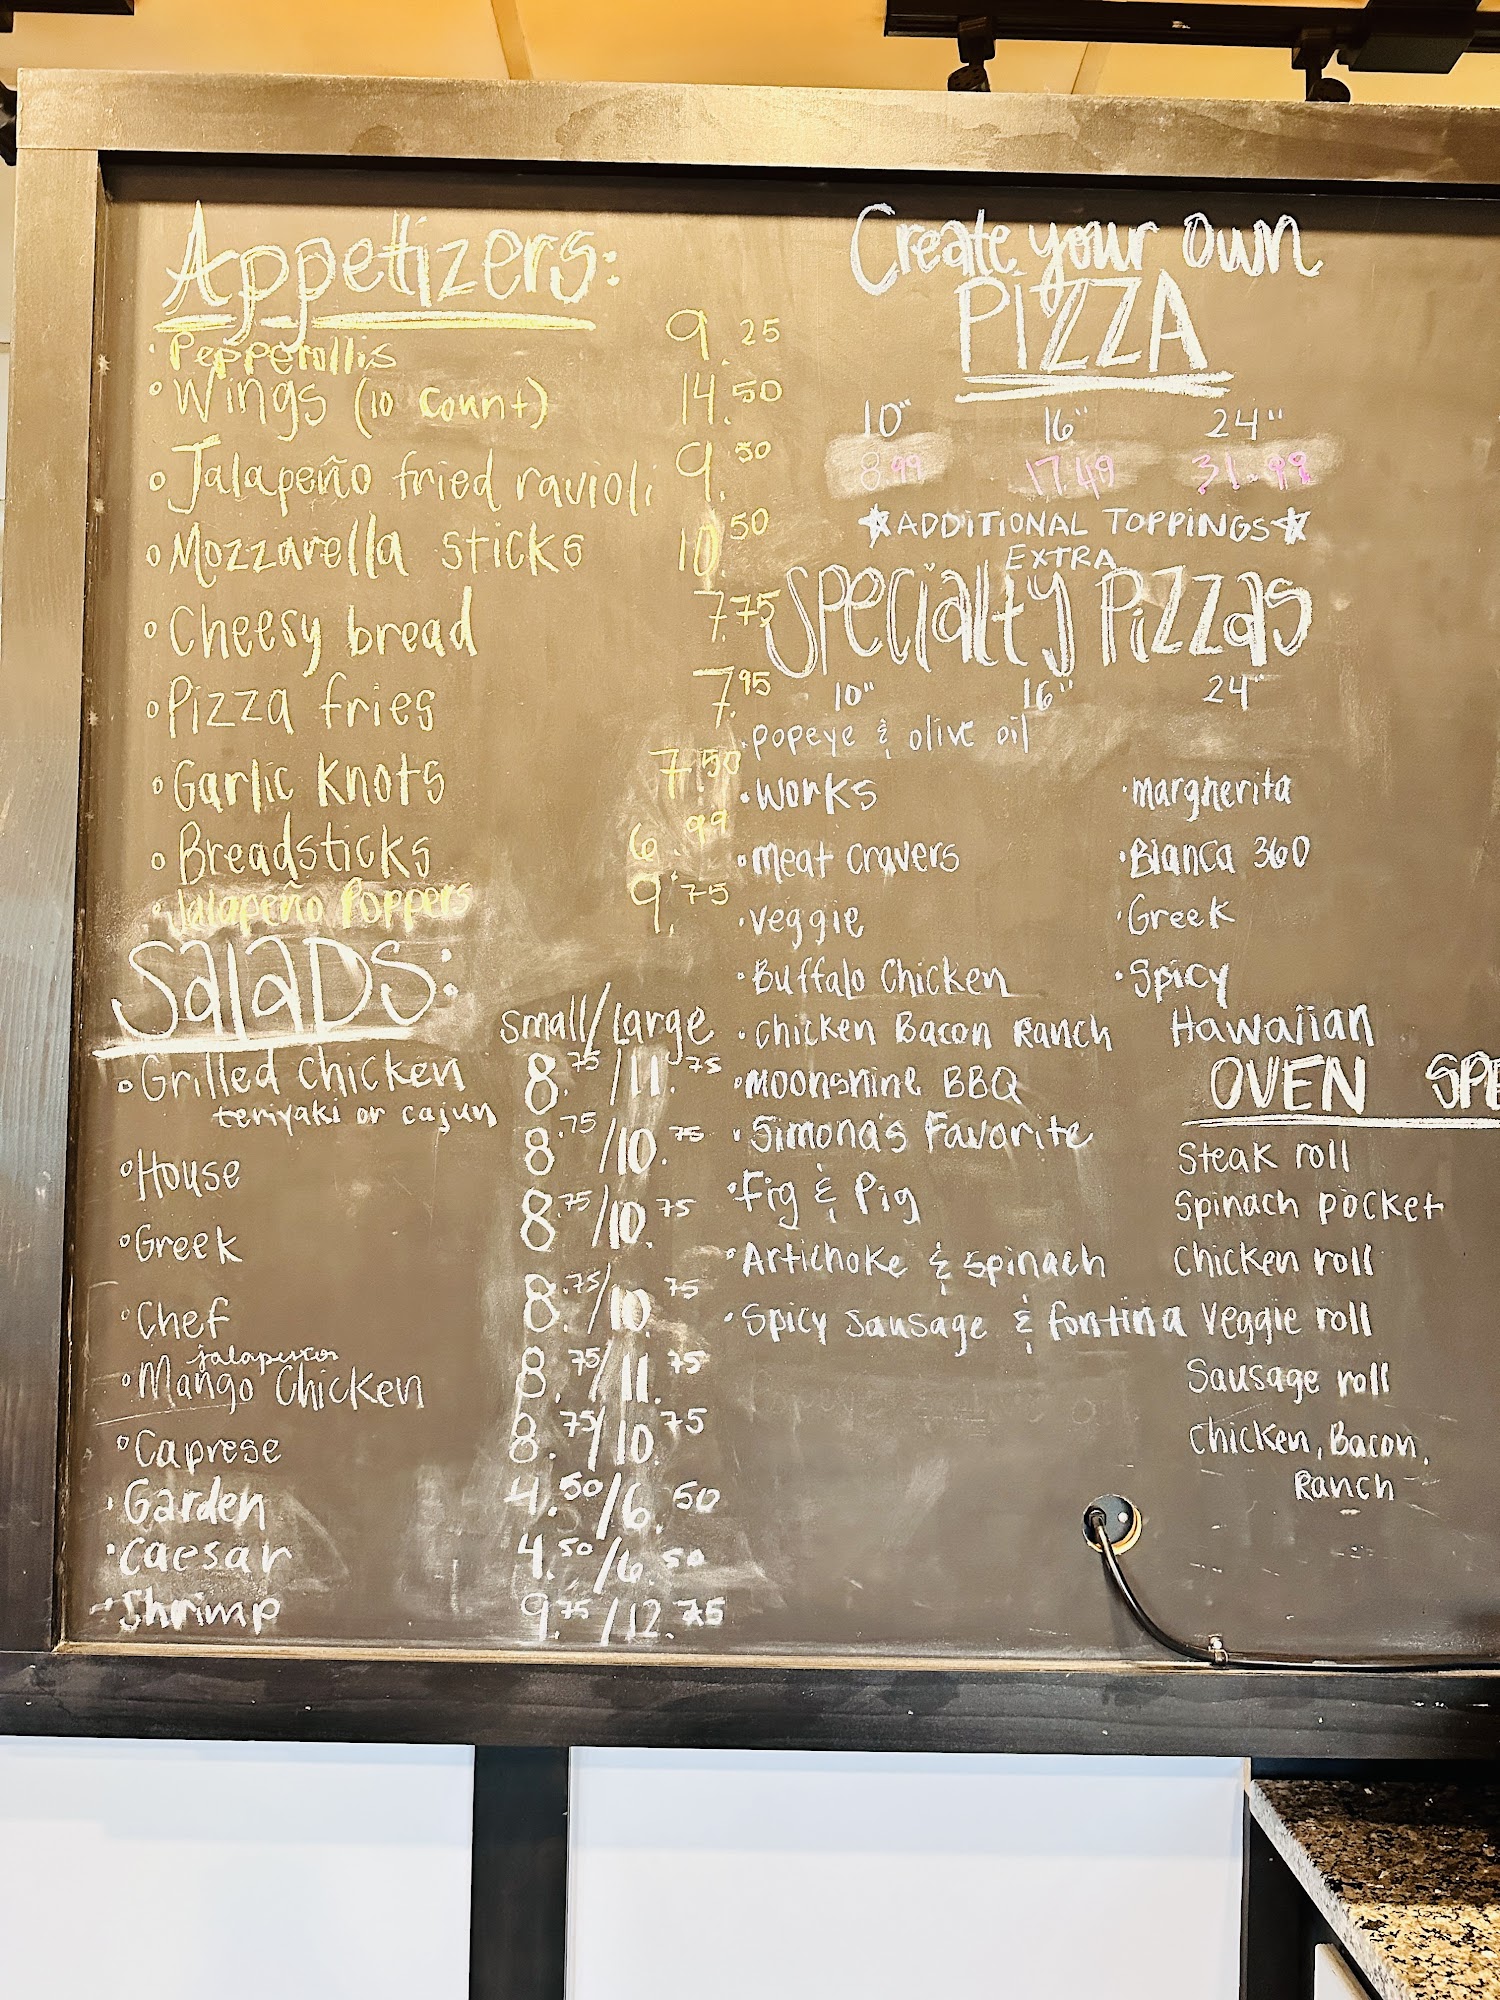 Appetizers:
· Pepperollis 9.25
∘ Wings (10 count) 14.50
∘ Jalapeño fried ravioli 9.50
∘ Mozzarella sticks 10.50
∘ Cheesy bread 7.75
∘ Pizza fries 7.95
∘ Garlic Knots 7.50
∘ Breadsticks 6.99
· Jalapeño Poppers 9.75
Salads:
Small/Large
∘ Grilled Chicken 8.75/11.75
teriyaki or cajun
∘ House 8.75/10.75
∘ Greek 8.75/10.75
∘ Chef 8.75/10.75
jalapeños
∘ Mango Chicken 8.75/11.75
∘ Caprese 8.75/10.75
· Garden 4.50/6.50
· Caesar 4.50/6.50
· Shrimp 9.75/12.75
Create your own
PIZZA
10" 16" 24"
8.99 17.49 31.99
★ADDITIONAL TOPPINGS★
EXTRA
Specialty Pizzas
10" 16" 24"
· Popeye & olive oil
· Works
· Meat Cravers
· Veggie
· Buffalo Chicken
· Chicken Bacon Ranch
· Moonshine BBQ
· Simona's Favorite
· Fig & Pig
· Artichoke & Spinach
· Spicy Sausage & fontina
· Margherita
· Bianca 360
· Greek
· Spicy
Hawaiian
OVEN SPE
Steak roll
Spinach pocket
Chicken roll
Veggie roll
Sausage roll
Chicken, Bacon,
Ranch